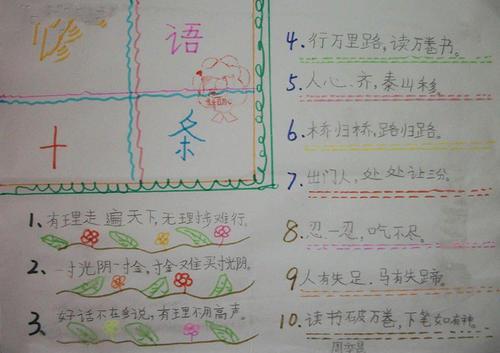 谚语
十条
1、有理走遍天下,无理寸步难行。
2、一寸光阴一寸金,寸金难买寸光阴。
3、好话不在多说,有理不用高声。
4、行万里路,读万卷书。
5、人心齐,泰山移。
6、桥归桥,路归路。
7、出门人,处处让三分。
8、忍一忍,吃不尽。
9、人有失足,马有失蹄。
10、读书破万卷,下笔如有神。